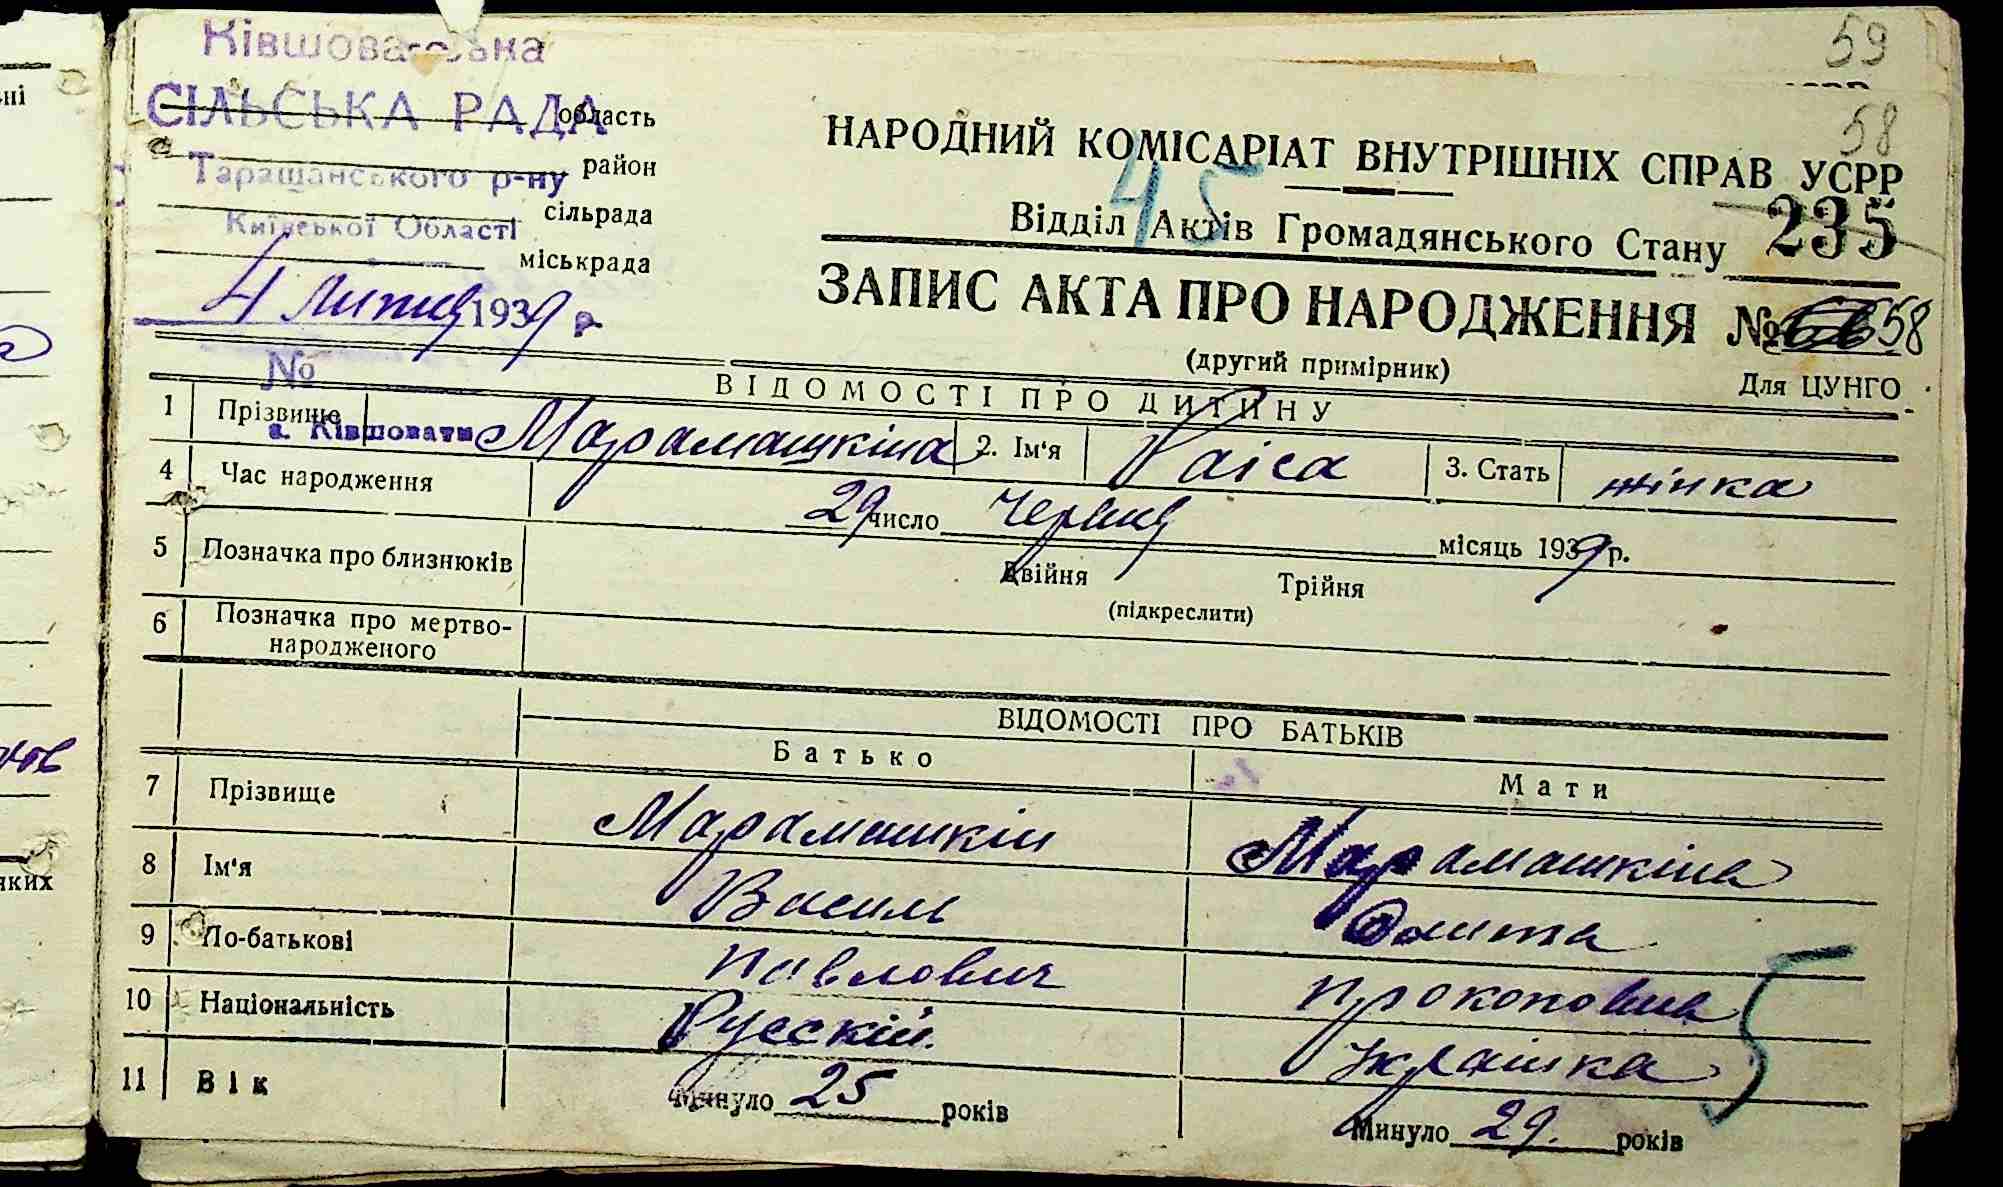 59
58
СІЛЬСЬКА РАДА
область
район
Таращанського р-ну
сільрада
Київської Області
міськрада
4 Липня 1939 р.
№
с. Ківшовати
НАРОДНИЙ КОМІСАРІАТ ВНУТРІШНІХ СПРАВ УСРР
45
Відділ Актів Громадянського Стану 235
ЗАПИС АКТА ПРО НАРОДЖЕННЯ № 58
(другий примірник)
Для ЦУНГО
ВІДОМОСТІ ПРО ДИТИНУ
1 Прізвище Марамашкіна 2. Ім'я Раіса 3. Стать жінка
4 Час народження 29 число Червня місяць 1939 р.
5 Позначка про близнюків Двійня Трійня
(підкреслити)
6 Позначка про мертво-
народженого
ВІДОМОСТІ ПРО БАТЬКІВ
Батько Мати
7 Прізвище Марамашкін Марамашкіна
8 Ім'я Василь
9 По-батькові Павлович Прокоповна
10 Національність Русскій. Украінка
11 Вік Минуло 25 років Минуло 29. років
5
ні
яких